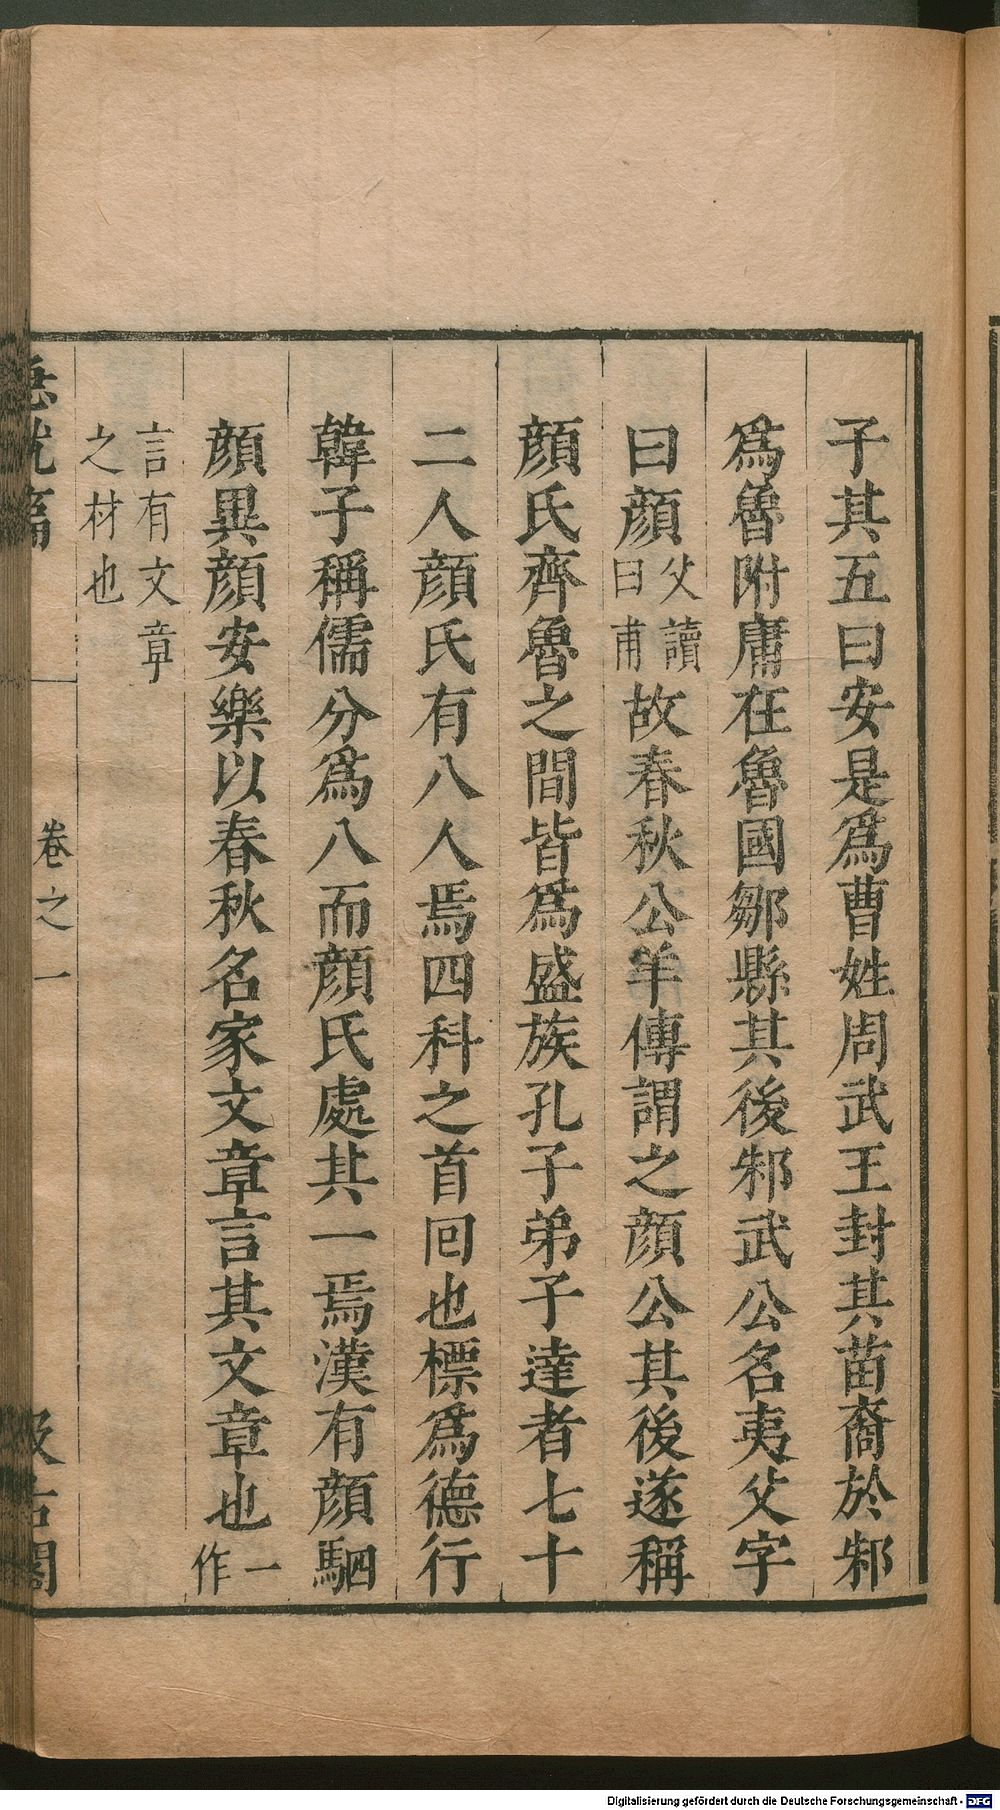 子其五曰安是爲曹姓周武王封其苗裔於邾
爲魯附庸在魯國鄒縣其後邾武公名夷父字
曰顏父讀曰甫故春秋公羊傳謂之顏公其後遂稱
顏氏齊魯之間皆爲盛族孔子弟子達者七十
二人顏氏有八人焉四科之首回也標爲德行
韓子稱儒分爲八而顏氏處其一焉漢有顏駟
顏異顏安樂以春秋名家文章言其文章也一作
言有文章
之材也
急就篇 卷之一 汲古閣
Digitalisierung gefördert durch die Deutsche Forschungsgemeinschaft - DFG